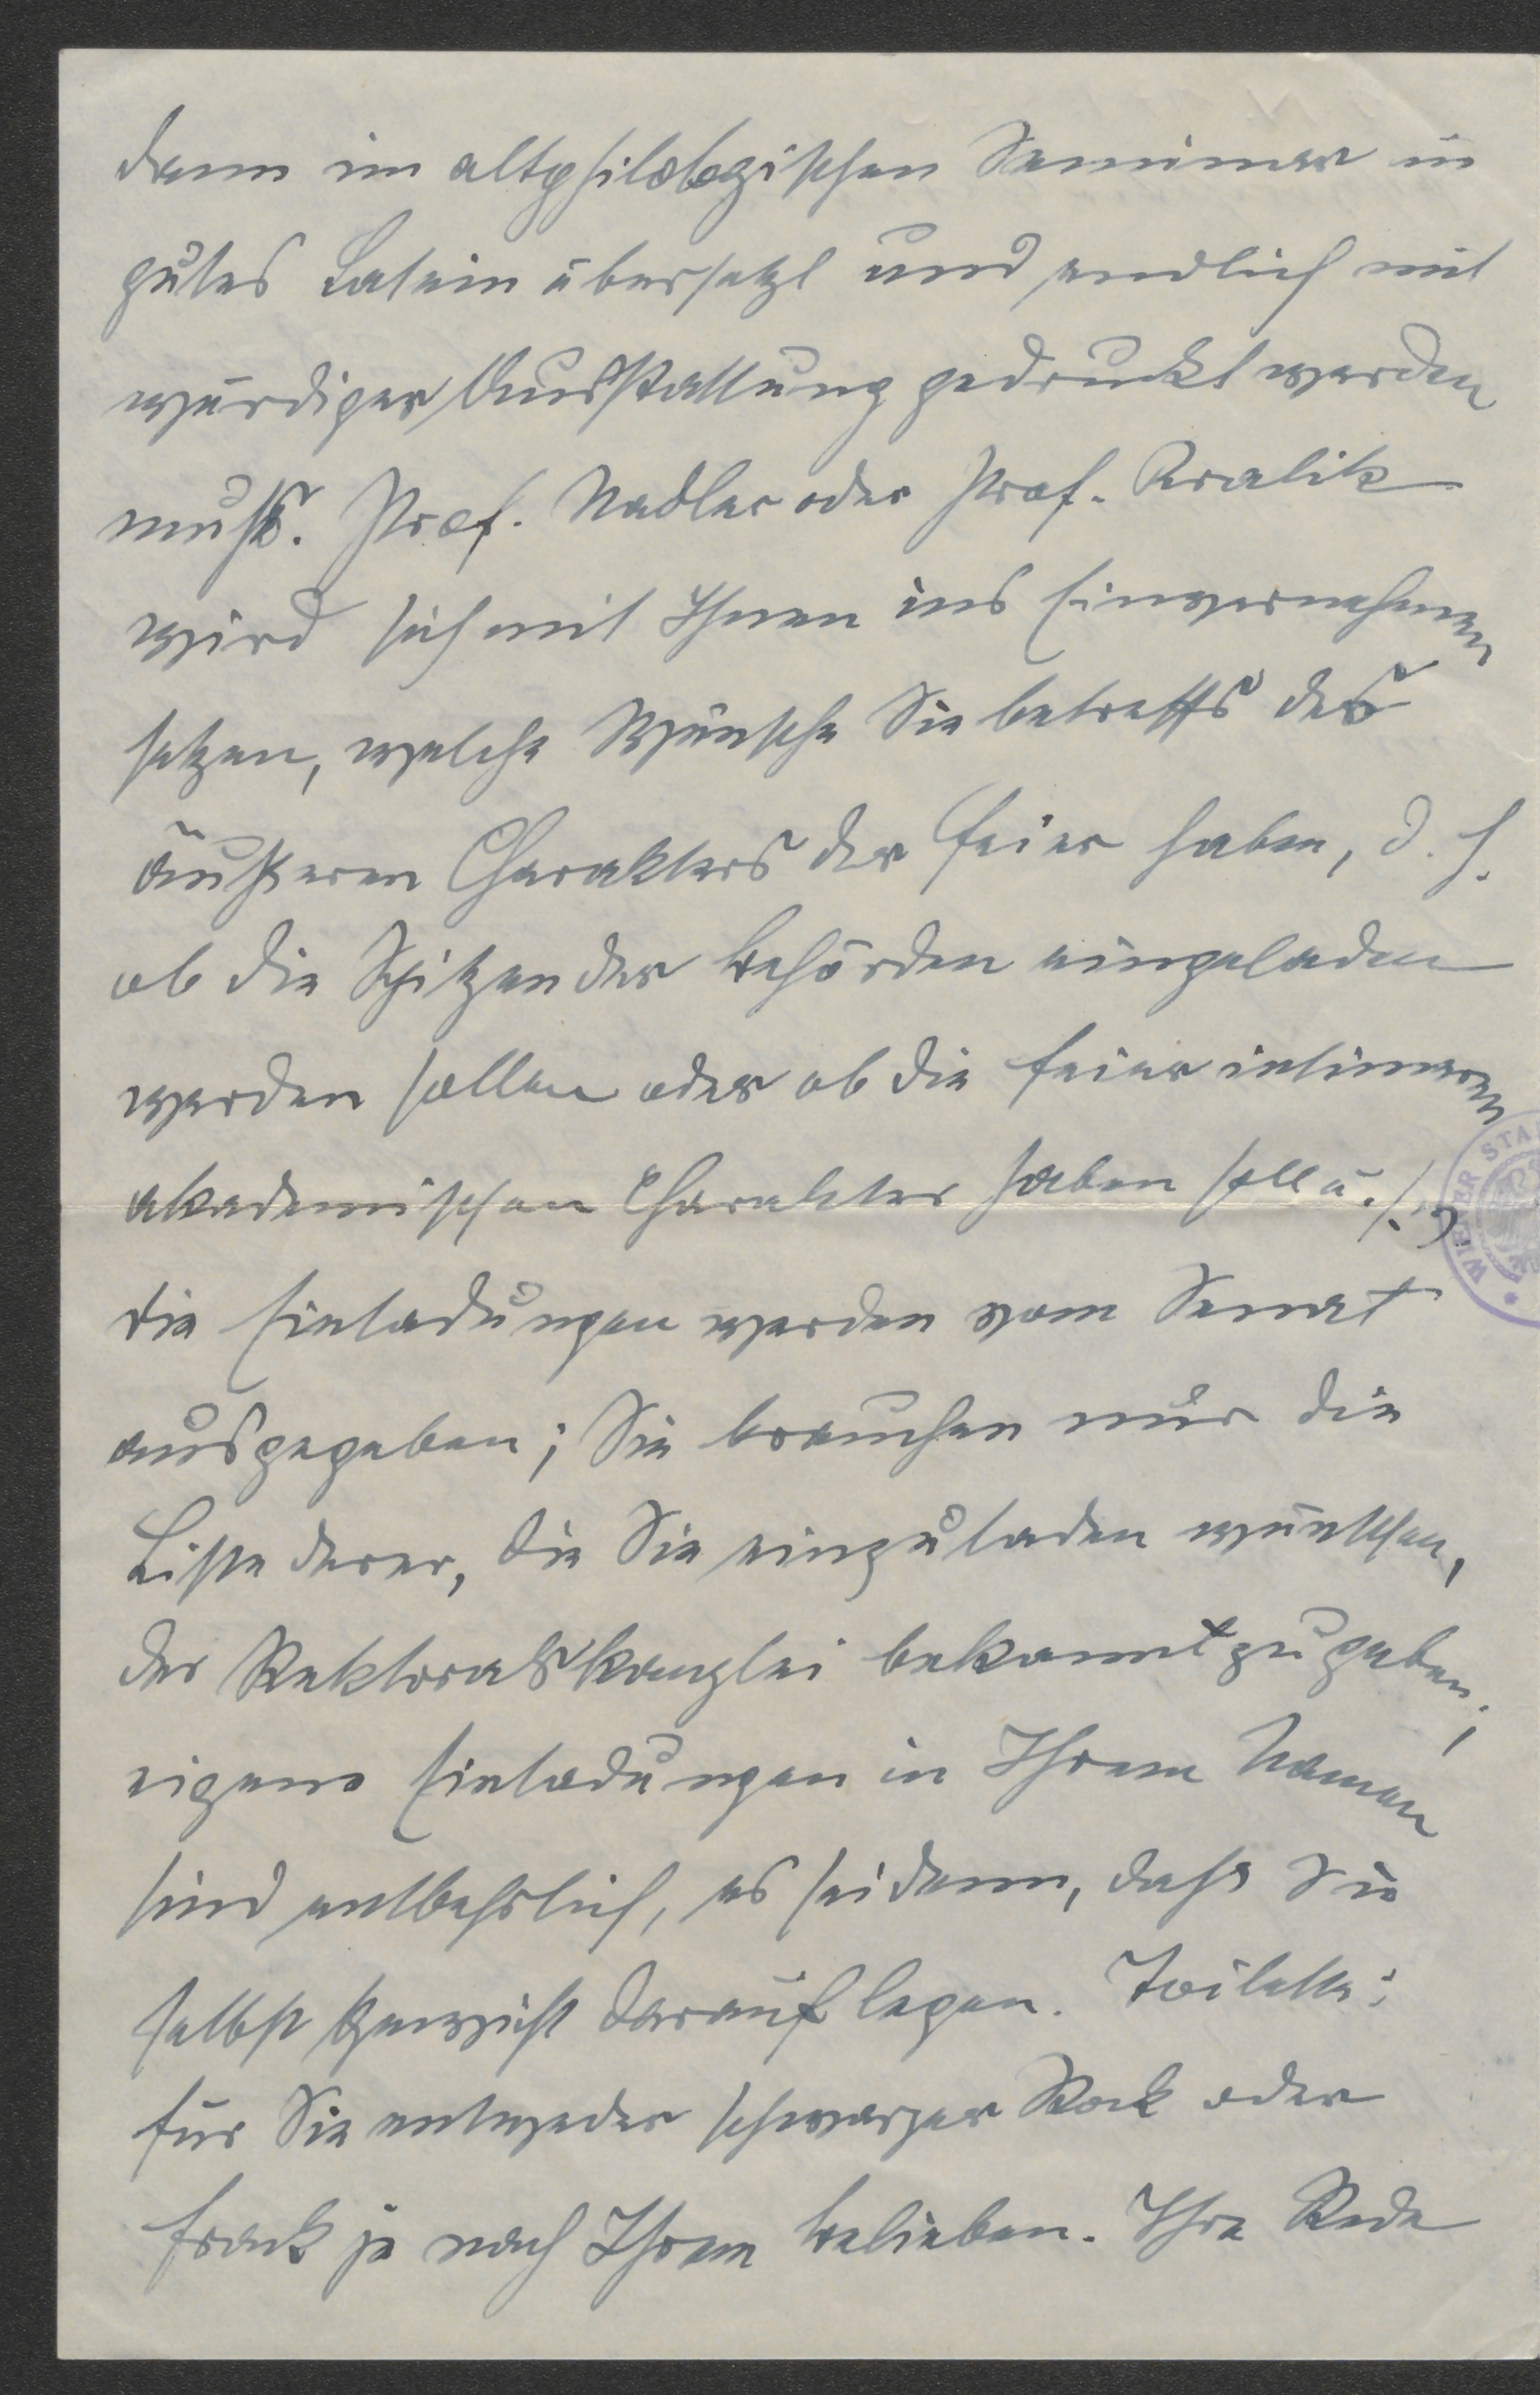 dann im altphilologischen Seminar in
gutes Latein übersetzt und endlich mit
würdiger Ausstattung gedruckt werden
muß. Prof. Nadler oder Prof. Kralik
wird sich mit Ihnen ins Einvernehmen
setzen, welche Wünsche Sie betreffs des
äußeren Charakters der Feier haben, d. h.
ob die Spitzen der Behörden eingeladen
werden sollen oder ob die Feier intimeren
akademischen Charakter haben soll u. s. w.
Die Einladungen werden vom Senat
ausgegeben; Sie brauchen nur die
Liste derer, die Sie einzuladen wünschen,
der Rektoratskanzlei bekanntzugeben;
eigene Einladungen in Ihrem Namen
sind entbehrlich, es sei denn, dass Sie
selbst Gewicht darauf legen. Toilette:
für Sie entweder schwarzer Rock oder
Frack je nach Ihrem Belieben. Ihre Rede
WIENER STA